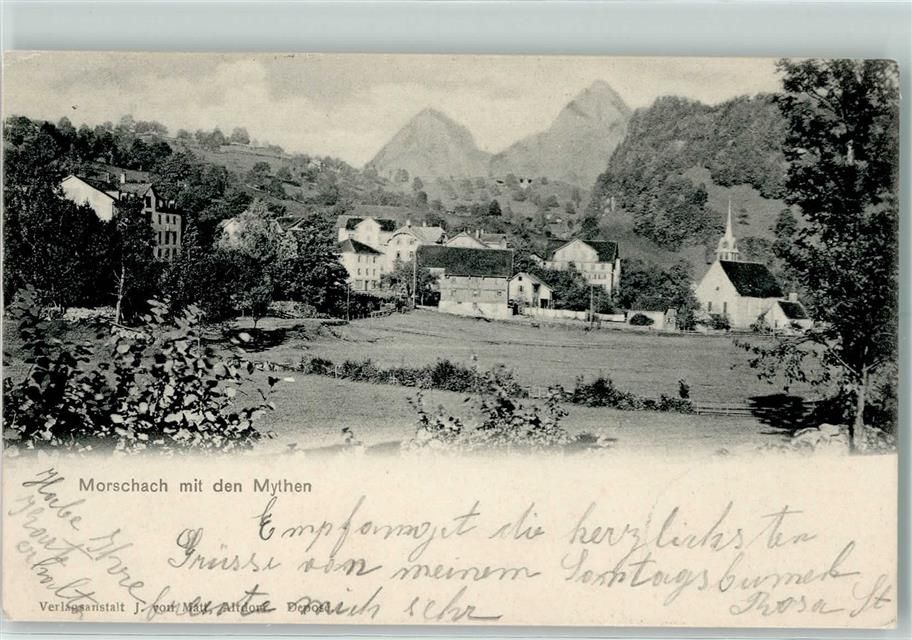 Morschach mit den Mythen
Habe Ihre
Karte
erhalten
Empfanget die herzlichsten
Grüsse von meinem Sontagsbumel
freute mich sehr
Rosa St
Verlagsanstalt J. von Matt, Altdorf. Deposé.